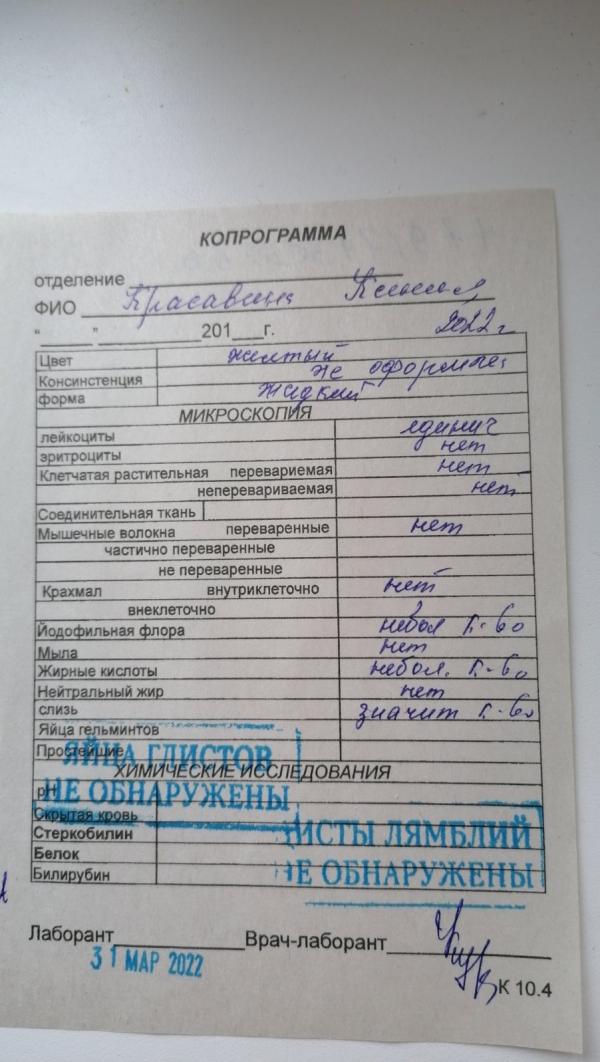 КОПРОГРАММА
отделение
ФИО Красавина
"____" ________ 201__г. 2022 г
Цвет желтый
Консинстенция не оформлен
форма жидкий
МИКРОСКОПИЯ
лейкоциты единич
эритроциты нет
Клетчатая растительная перевариемая нет
непереввариваемая нет
Соединительная ткань
Мышечные волокна переваренные нет
частично переваренные
не переваренные
Крахмал внутриклеточно нет
внеклеточно
Йодофильная флора небол к-во
Мыла нет
Жирные кислоты небол. к-во
Нейтральный жир нет
слизь значит к-во
Яйца гельминтов
Простейшие
ЯЙЦА ГЛИСТОВ
НЕ ОБНАРУЖЕНЫ
ХИМИЧЕСКИЕ ИССЛЕДОВАНИЯ
pH
Скрытая кровь
ЦИСТЫ ЛЯМБЛИЙ
НЕ ОБНАРУЖЕНЫ
Стеркобилин
Белок
Билирубин
Лаборант Врач-лаборант
31 МАР 2022
К 10.4